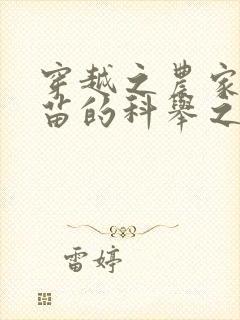 穿越之农家
苗的科举之
雷婷